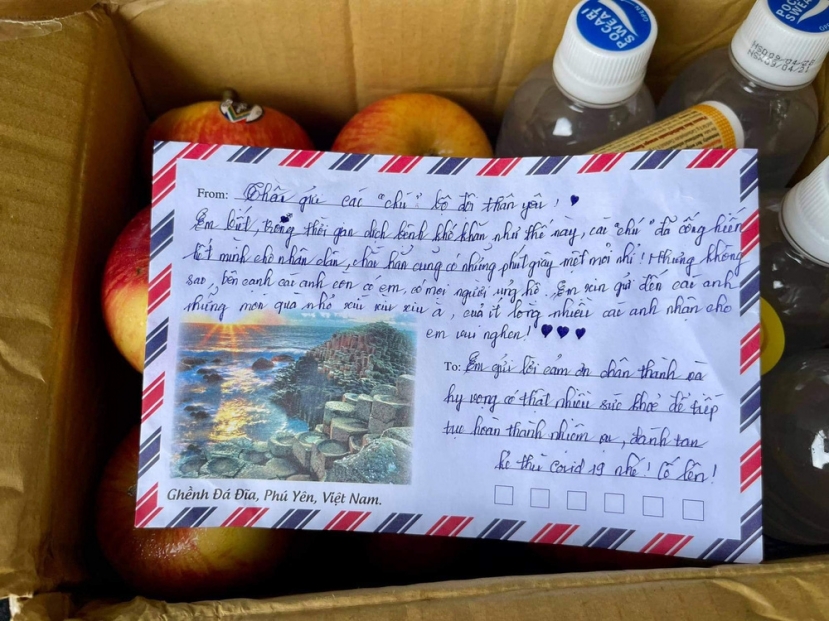 POCARI
SWEAT
POCARI
SWEAT
From: Chào gửi các "chú" bộ đội thân yêu!
Em biết, trong thời gian dịch bệnh khó khăn như thế này, các "chú" đã cống hiến
hết mình cho nhân dân, chắc hẳn cũng có những phút giây mệt mỏi nhỉ! Nhưng không
sao, bên cạnh các anh còn có em, có mọi người ủng hộ. Em xin gửi đến các anh
những món quà nhỏ xíu xìu xiu à, của ít lòng nhiều các anh nhận cho
em vui nghen!
To: Em gửi lời cảm ơn chân thành và
hy vọng có thật nhiều sức khoẻ để tiếp
tục hoàn thành nhiệm vụ, đánh tan
kẻ thù covid 19 nhé! Cố lên!
Ghềnh Đá Đĩa, Phú Yên, Việt Nam.